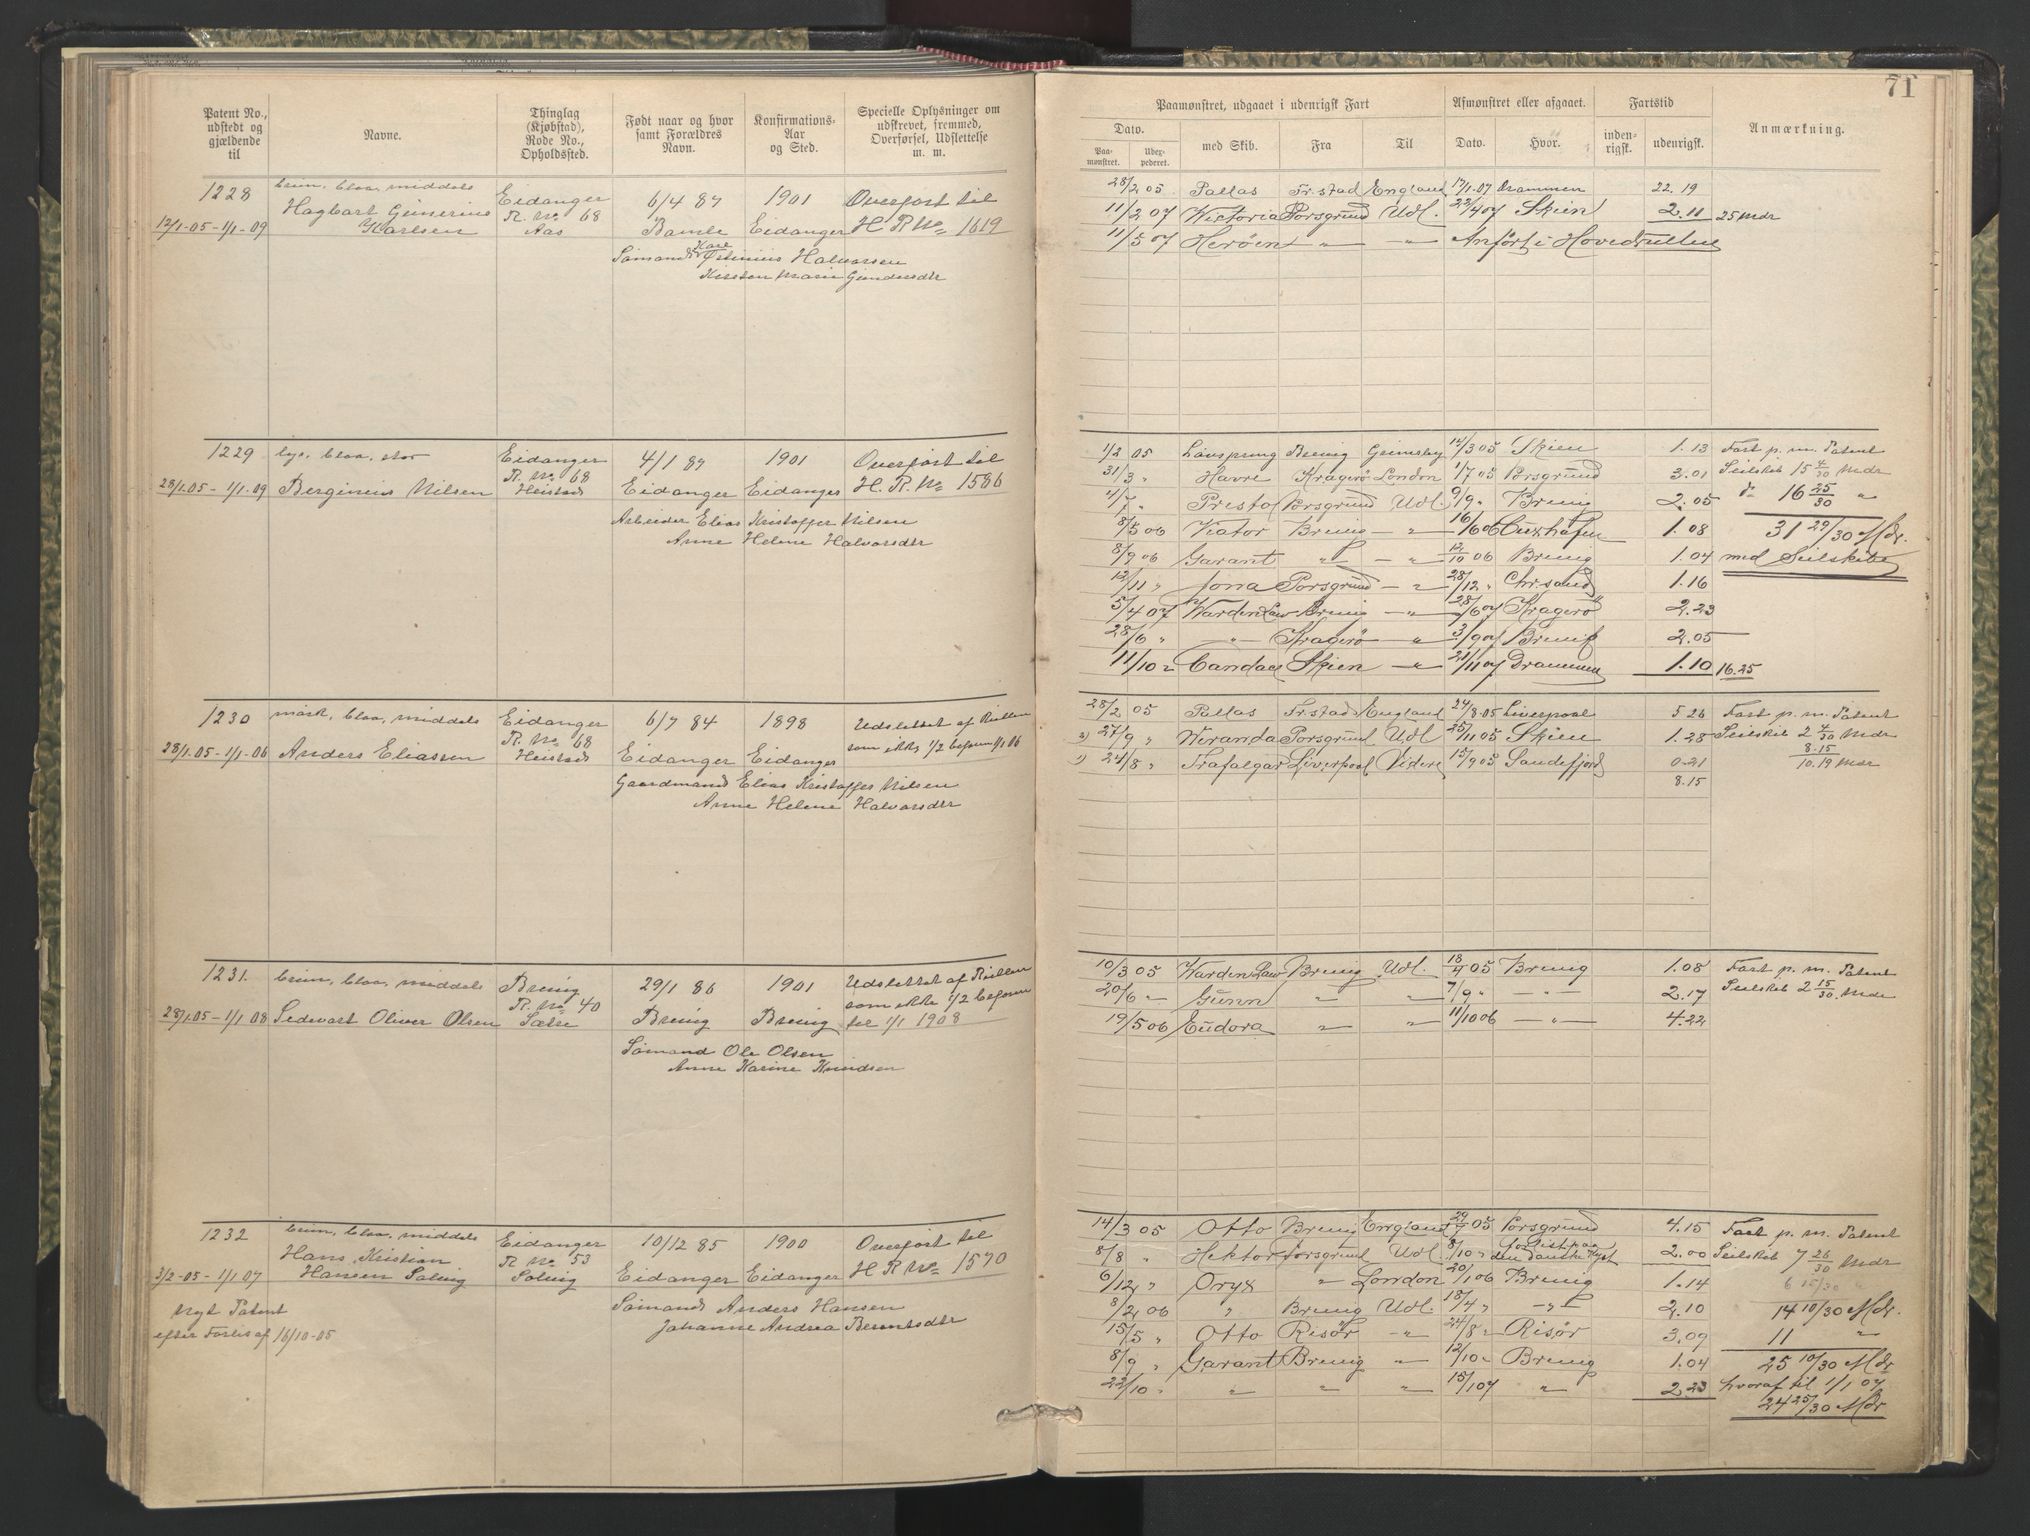 71
Patent No., udstedt og gjældende til
Navne.
Thinglag (Kjøbstad), Rode No., Opholdssted.
Født naar og hvor samt Forældres Navn.
Konfirmations-Aar og Sted.
Specielle Oplysninger om udskrevet, fremmed, Overførsel, Udslettelse m. m.
Paamønstret, udgaaet i udenrigsk Fart
Afmønstret eller afgaaet.
Fartstid
Anmærkning.
Dato.
Paamønstret.
Udexpederet.
med Skib.
Fra
Til
Dato.
Hvor.
indenrigsk.
udenrigsk.
1228 brun, blaa, middels Eidanger 6/4 87 1901 Overført til
Hagbart Gunerius R. No 68
12/1-05-1/1-09 Karlsen Aas Bamle Eidanger H R No 1619
Sømand Kare Østinius Halvorsen
Kirsten Marie Gundersdtr
28/2 05 Pallas Fr.stad England 17/1.07 Drammen 22.19
11/2 07 Victoria Porsgrund Udl. 22/4 07 Skien 2.11 25 Mdr
11/5 07 Herøen " " Anført i Hovedrullen
1229 lys, blaa, stor Eidanger 4/1 87 1901 Overført til
R. No 68
28/1.05-1/1.09 Berginius Nilsen Heistad Eidanger Eidanger H. R. No 1586
Arbeider Elias Kristoffer Nilsen
Anne Helene Halvorsdtr
1/2 05 Løvspring Brevig Grimsby 14/3 05 Skien 1.13 Fart p. m. Patent
31/3 " Havre Kragerø London 1/7 05 Porsgrund 3.01 Seilskib 15 4/30 Mdr
4/7 " Presto Porsgrund Udl. 9/9 " Brevig 2.05 do 16 25/30 "
8/5 06 Viator Brevig " 16/6 06 Cuxhafen 1.08 31 29/30 Mdr.
8/9 06 Garant " " 12/10 06 Brevig 1.04 med Seilskibe
12/11 " Jona Porsgrund " 28/12 " Chr.sand 1.16
5/4 07 Warden Law Brevig " 28/6 07 Kragerø 2.23
28/6 " " Kragerø " 3/9 07 Brevig 2.05
11/10 " Candace Skien " 21/11 07 Drammen 1.10 16.25
1230 mørk, blaa, middels Eidanger 6/7 84 1898 Udslettet af Rullen
R. No 68 som ikke 1/2 befaren 1/1 06
28/1.05-1/1.06 Anders Eliassen Heistad Eidanger Eidanger
Gaardmand Elias Kristoffer Nilsen
Anne Helene Halvorsdtr
28/2 05 Pallas Fr.stad England 24/8.05 Liverpool 5.26 Fart p. m. Patent
2) 27/9 " Veranda Porsgrund Udl 25/11 05 Skien 1.28 Seilskib 2 4/30 Mdr
1) 24/8 " Trafalgar Liverpool Videre 15/9 05 Sandefjord 0.21 8.15
8.15 10.19 Mdr
1231. brun, blaa, middels Brevig 29/1 86 1901 Udslettet af Rullen
R. No 40 som ikke 1/2 befaren
28/1.05-1/1 08 Sedevart Oliver Olsen Sætre Brevig Brevig til 1/1 1908
Sømand Ole Olsen
Anne Karine Knudsen
10/3 05 Warden Law Brevig Udl. 18/4 05 Brevig 1.08 Fart p. m. Patent
20/6 " Gunn " " 7/9 " " 2.17 Seilskib 2 15/30 Mdr
19/5 06 Eudora " " 11/10 06 " 4.22
1232 brun, blaa, middels Eidanger 10/12 85 1900 Overført til
Hans Kristian R No 53
3/2-05-1/1.07 Hansen Salvig Salvig Eidanger Eidanger H R No 1570
Nyt Patent Sømand Anders Hansen
efter Forlis af 16/10-05 Johanne Andrea Berntsdtr
14/3 05 Otto Brevig England 29/7 05 Porsgrund 4.15 Fart p. m. Patent
8/8 " Hektor Porsgrund Udl 8/10 " Forlist paa den danske Kyst 2.00 Seilskib 7 26/30 Mdr
6/12 " Oryx " London 20/1 06 Brevig 1.14 6 15/30 "
8/2 06 " Brevig Udl. 18/4 " " 2.10 14 10/30 Mdr.
15/5 " Otto Risør " 24/8 " Risør 3.09 11 "
8/9 " Garant Brevig " 12/10 " Brevig 1.04 25 10/30 Mdr
22/10 " " " " 15/1 07 " 2.23 hvoraf til 1/1 07
24 25/30 Mdr